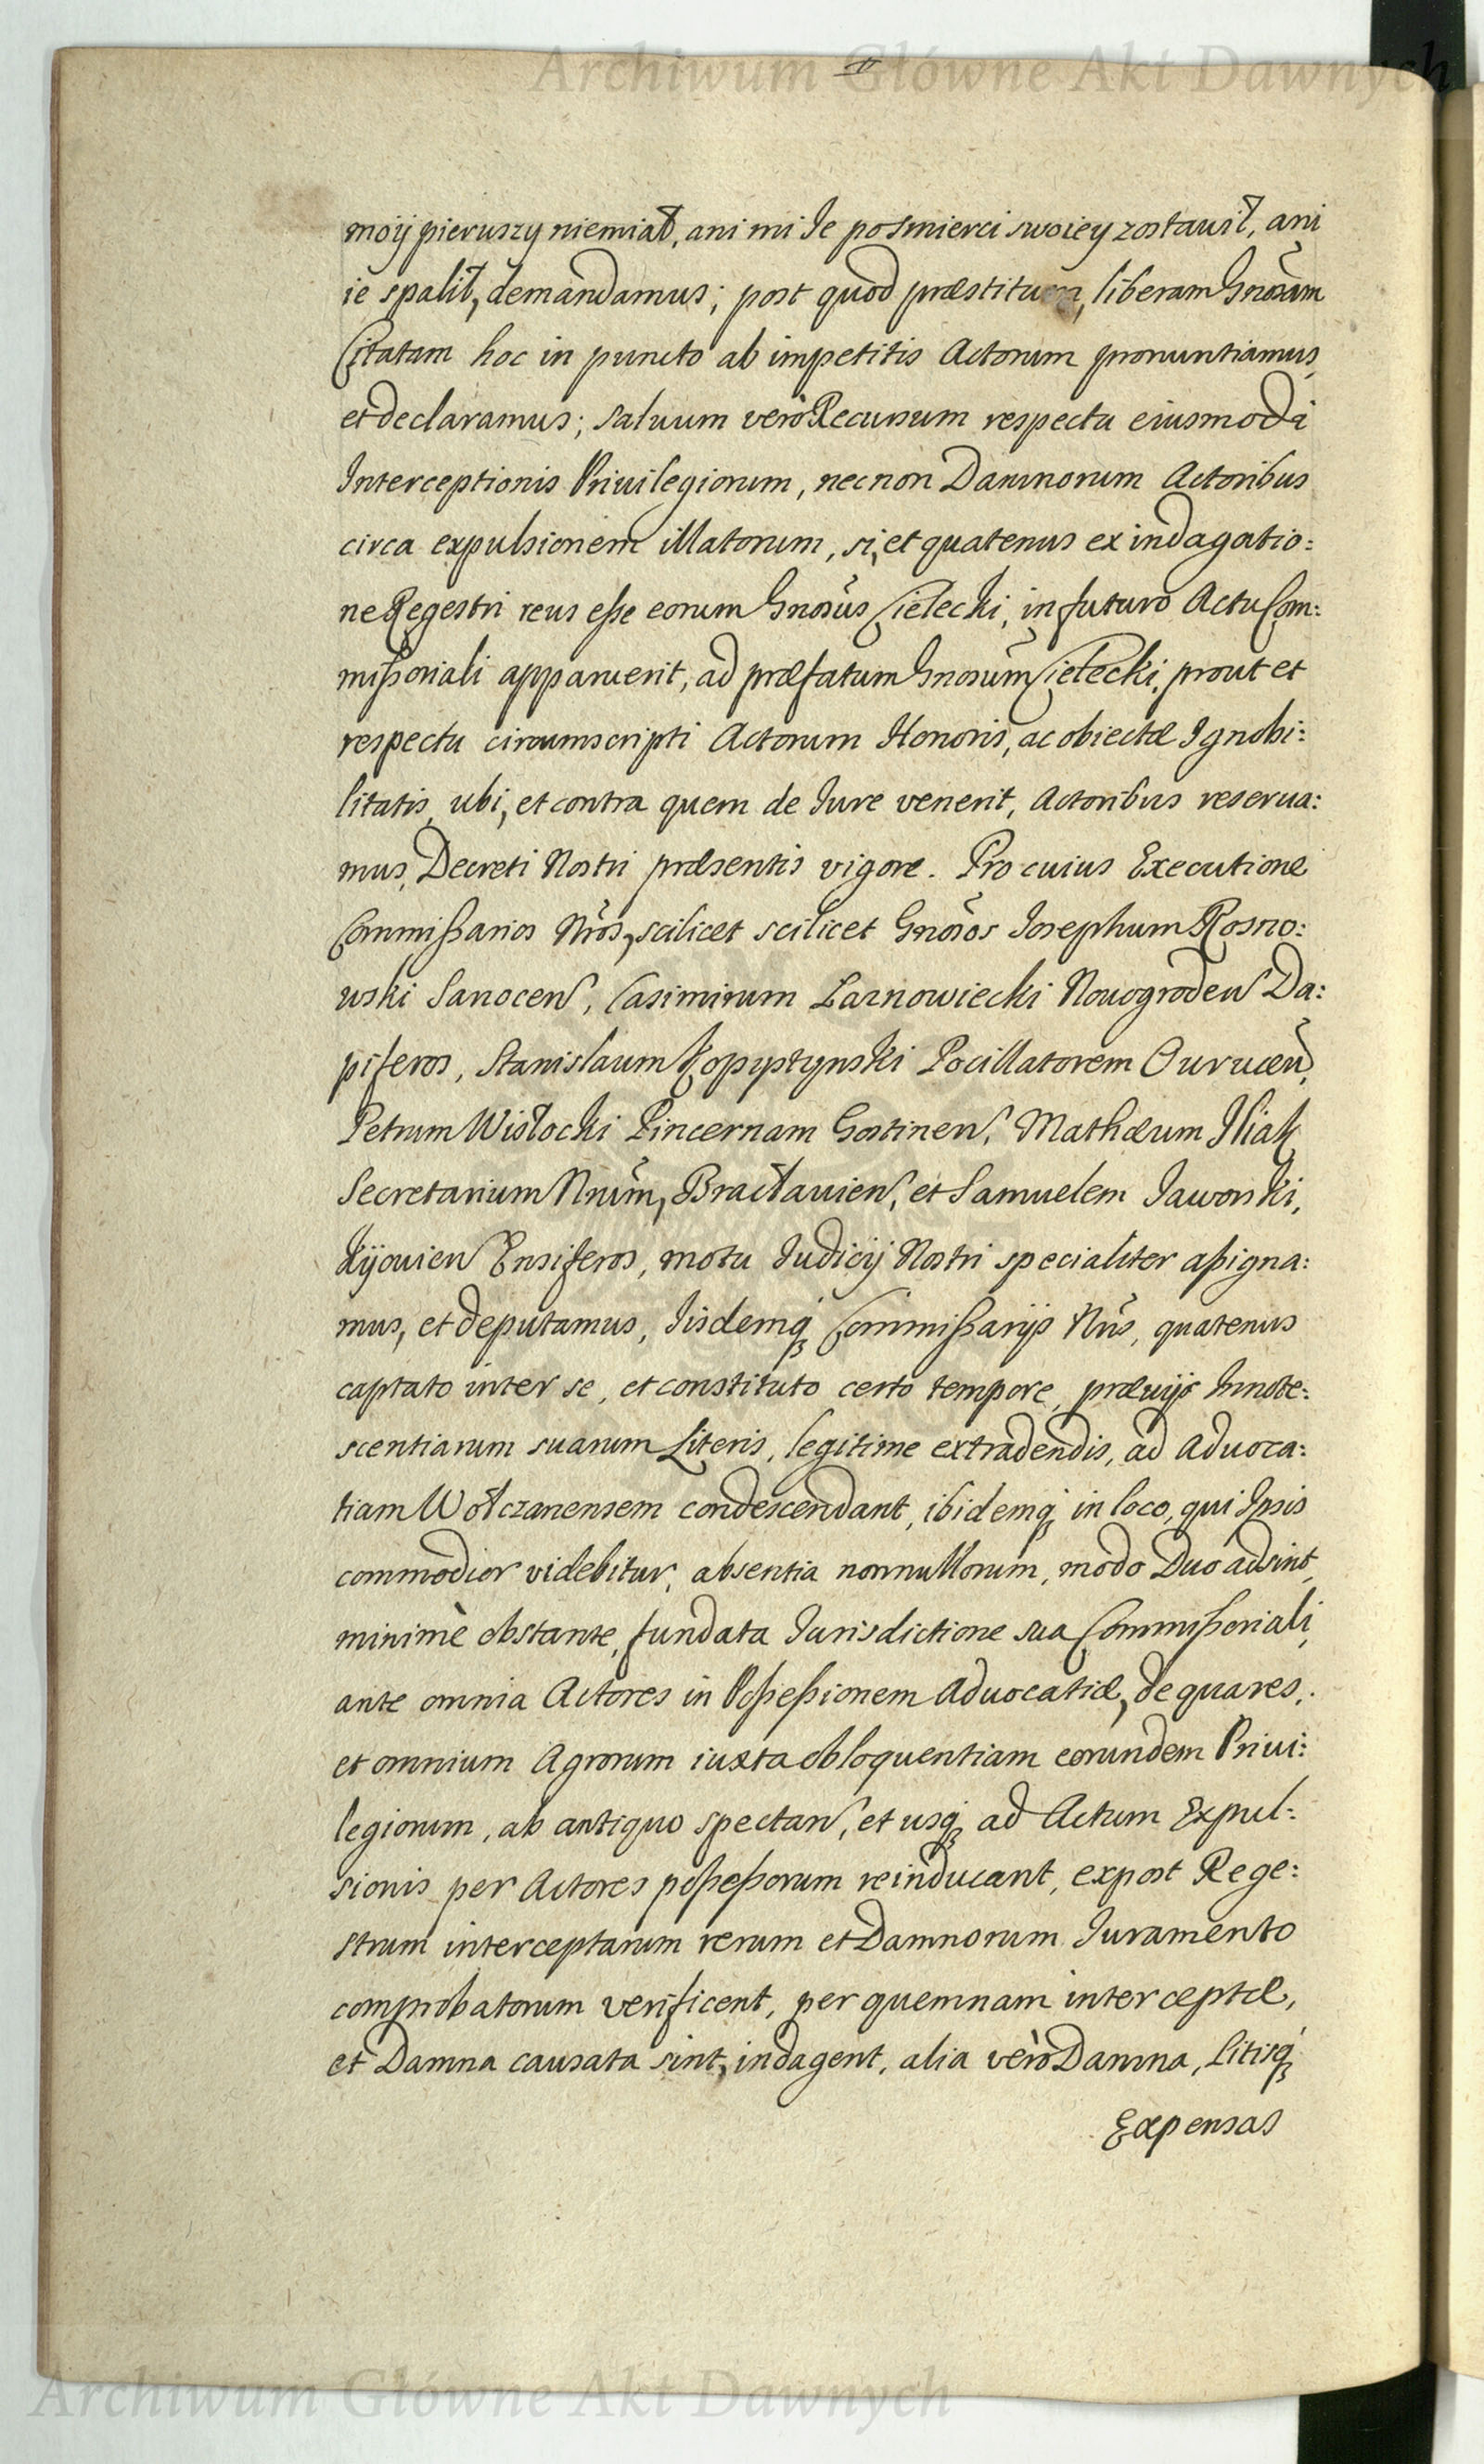 Archiwum Główne Akt Dawnych
moÿ pierwszy niemiał, ani mi Je pośmierci swoiey zostawił, ani
ie spalił, demandamus; post quod præstitum, liberam Gnosam
Citatam hoc in puncto ab impetitis Actorum pronuntiamus,
et declaramus; saluum verò Recursum respectu eiusmodi
Interceptionis Priuilegiorum, necnon Damnorum Actoribus
circa expulsionem illatorum, si, et quatenus ex indagatio:
ne Regestri reus esse eorum Gnosus Cielecki, in futuro Actu Com:
missoriali apparuerit, ad præfatum Gnosum Cielecki, prout et
respectu circumscripti Actorum Honoris, ac obiectæ Ignobi:
litatis, ubi, et contra quem de Jure venerit, Actoribus reserua:
mus, Decreti Nostri præsentis vigore. Pro cuius Executione
Commissarios Nros, scilicet scilicet Gnosos Josephum Rosno:
wski Sanocen, Casimirum Łarnowiecki Nouogroden Da:
piferos, Stanislaum Kopyptynski Pocillatorem Ourucen,
Petrum Wisłocki Pincernam Gostinen, Mathæum Iliak
Secretarium Nrum, Bracłauien, et Samuelem Jaworski,
Kÿouien Ensiferos, motu Judicÿ Nostri specialiter assigna:
mus, et deputamus, Jisdemq Commissarÿs Nris, quatenus
captato inter se, et constituto certo tempore, præuÿs Innote:
scentiarum suarum Literis, legitime extradendis, ad Aduoca:
tiam Wołczanensem condescendant, ibidemq in loco, qui Ipsis
commodior videbitur, absentia nonnullorum, modo Duo adsint,
minimè obstante, fundata Jurisdictione sua Commissoriali,
ante omnia Actores in Possessionem Aduocatiæ, de qua res,
et omnium Agrorum iuxta obloquentiam eorundem Priui:
legiorum, ab antiquo spectan, et usq ad Actum Expul:
sionis per Actores possessorum reinducant, expost Rege:
strum interceptarum rerum et Damnorum Juramento
comprobatorum verificent, per quemnam interceptæ,
et Damna causata sint, indagent, alia verò Damna, Litisq
Expensas
Archiwum Główne Akt Dawnych